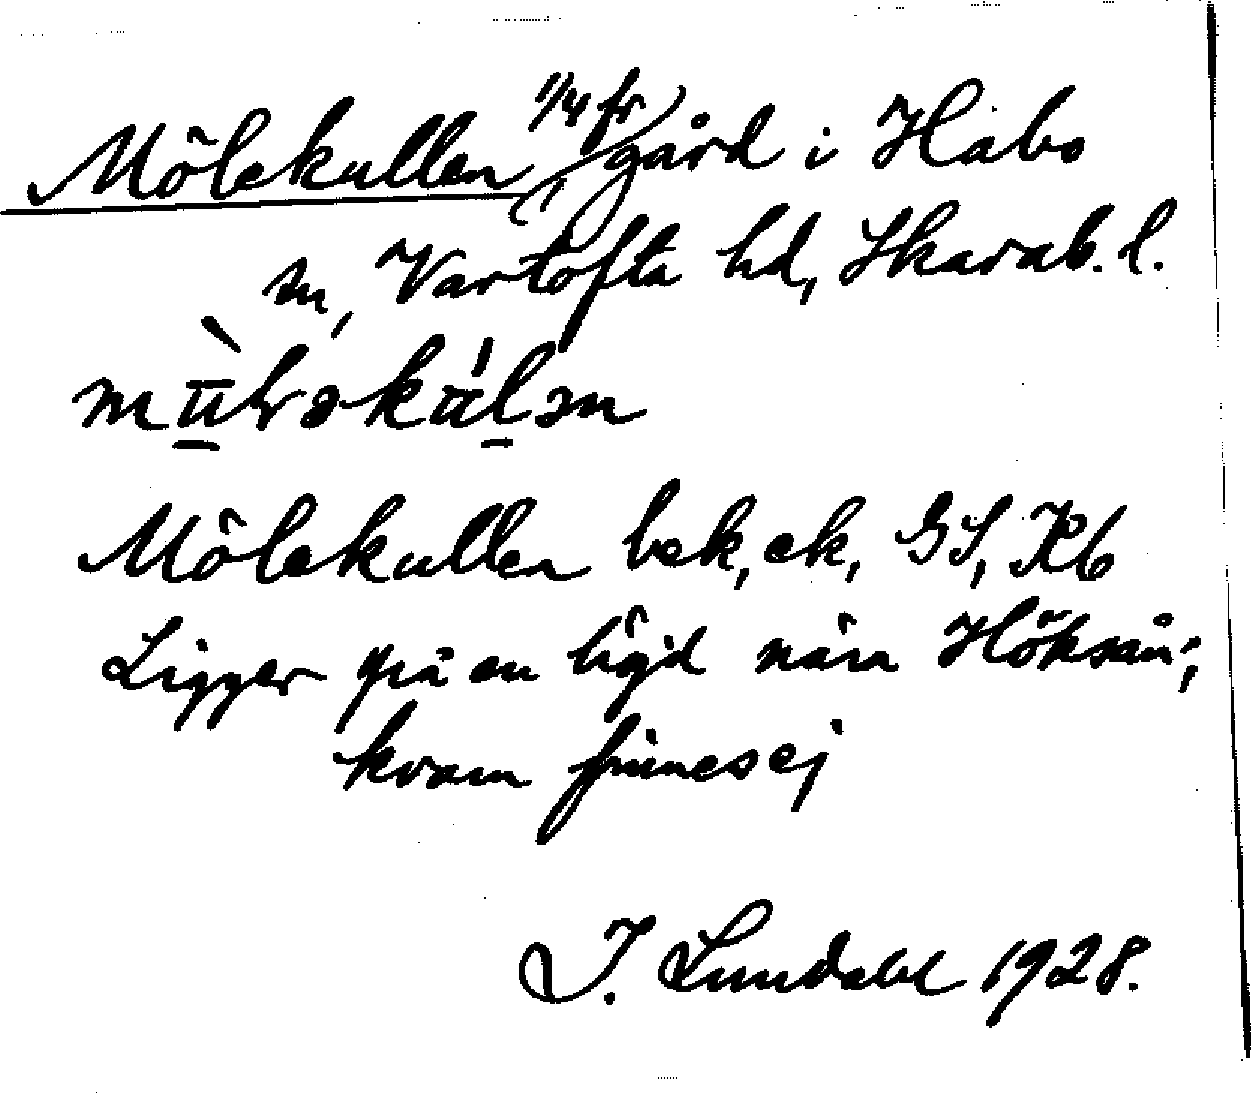 Mölekullen (1/4 fr) gård i Habo
sn, Vartofta hd, Skarab. l.
Mölekullen bek, ek, GS, Kb
Ligger på en höjd nära Höksån;
kvarn finnes ej
I. Lundahl 1928.